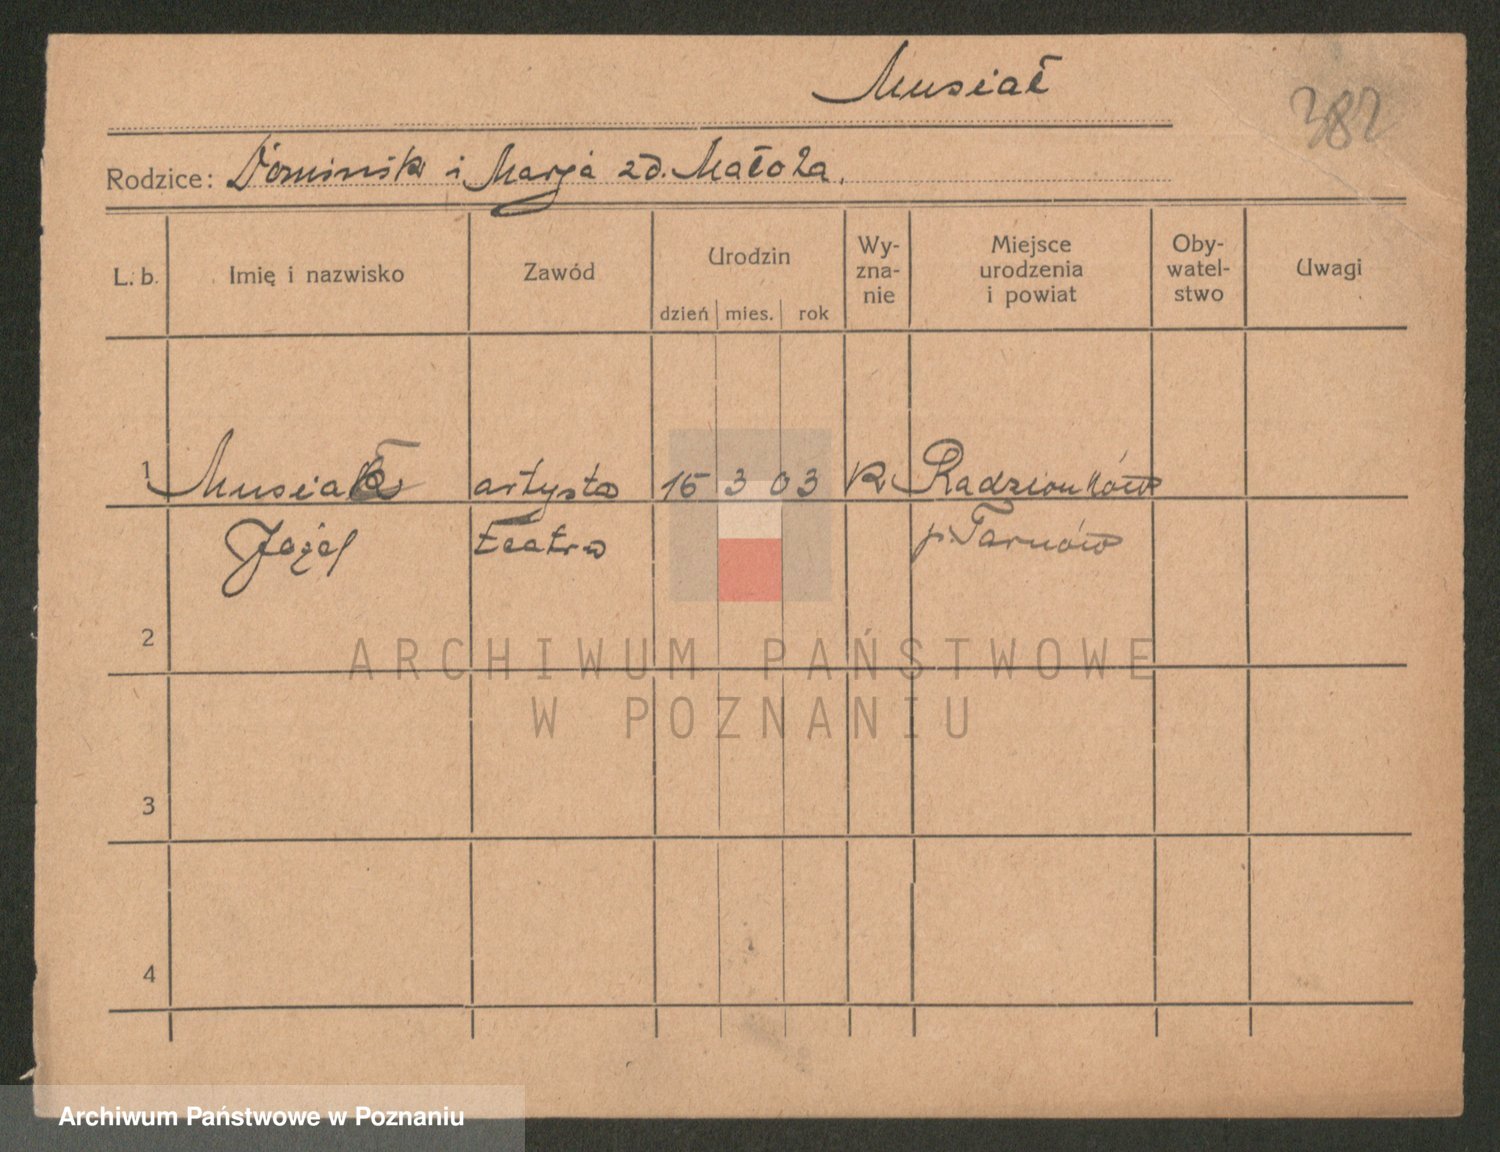 Musiał
382
Rodzice: Dominik i Marja zd. Małota.
L. b. Imię i nazwisko Zawód Urodzin dzień mies. rok Wy-zna-nie Miejsce urodzenia i powiat Oby-watel-stwo Uwagi
1 Musiał artysta 15 3 03 R Radzionków
Józef teatru p. Tarnów
2
ARCHIWUM PAŃSTWOWE
W POZNANIU
3
4
Archiwum Państwowe w Poznaniu